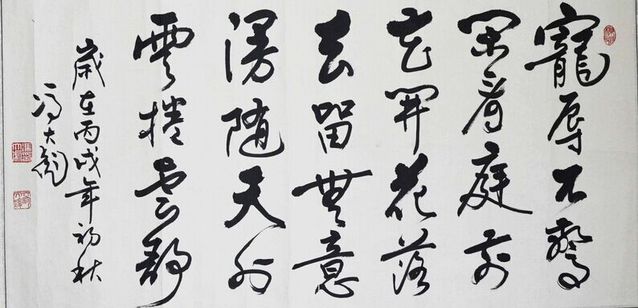 寵辱不驚
閑看庭前
花開花落
去留無意
漫随天外
雲捲雲舒
歲在丙戌年初秋
馮大